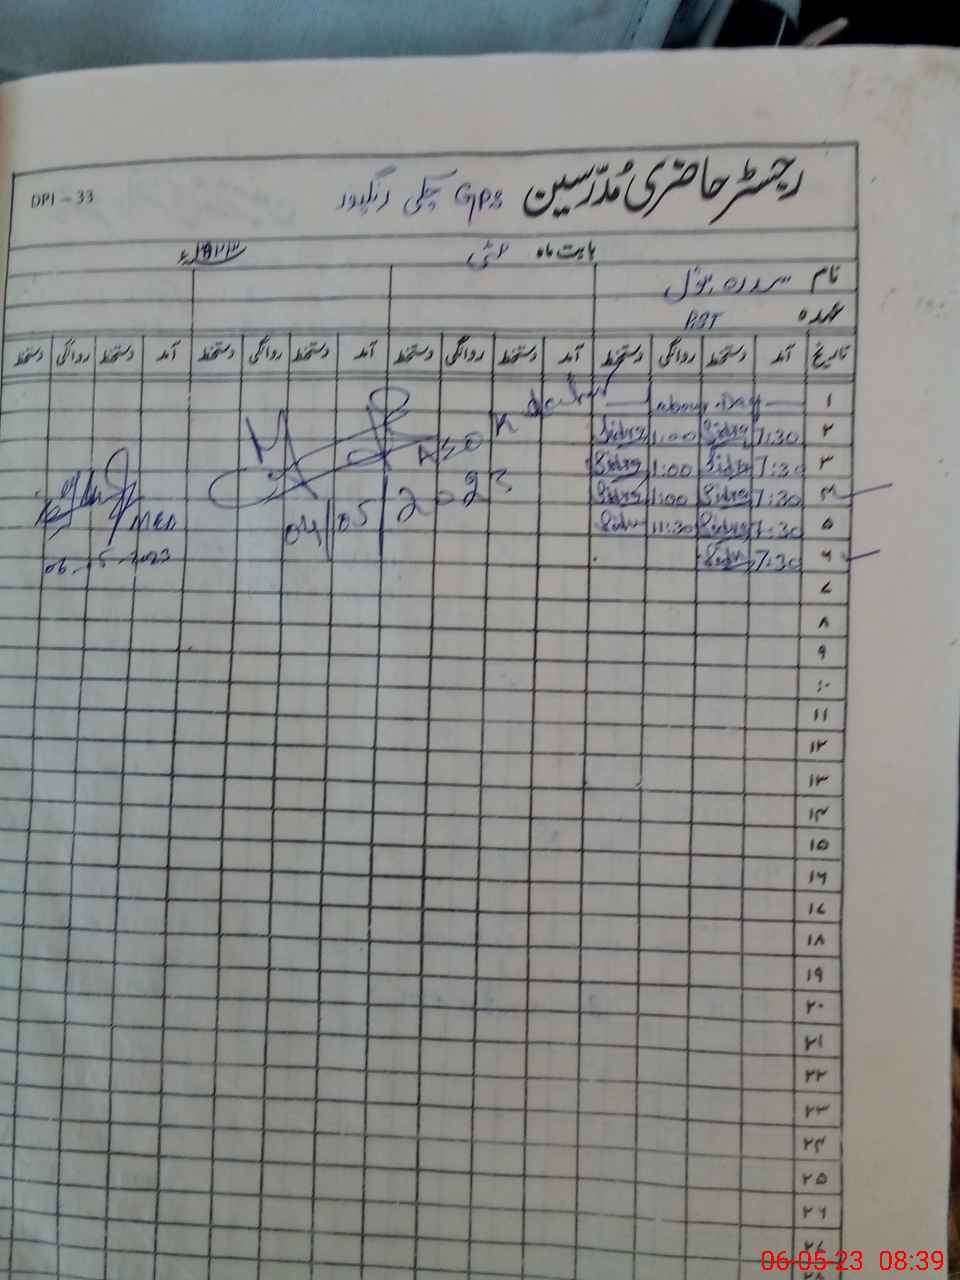 رجسٹر حاضری مُدرّسین GPS چکی رنگپور
DPI - 33
بابت ماہ مئی
نام سدرہ بتول
عہدہ PST
تاریخ آمد دستخط روانگی دستخط آمد دستخط روانگی دستخط آمد دستخط روانگی دستخط آمد دستخط روانگی دستخط
۱ Labour Day
۲ 7:30 Sidra 1:00 Sidra
۳ 7:30 Sidra 1:00 Sidra
۴ 7:30 Sidra 1:00 Sidra
۵ 7:30 Sidra 11:30 Sidra
۶ 7:30 Sidra
ASO K
04/05/2023
MEA
06-5-2023
۷
۸
۹
۱۰
۱۱
۱۲
۱۳
۱۴
۱۵
۱۶
۱۷
۱۸
۱۹
۲۰
۲۱
۲۲
۲۳
۲۴
۲۵
۲۶
۲۷
۲۸
06-05-23 08:39